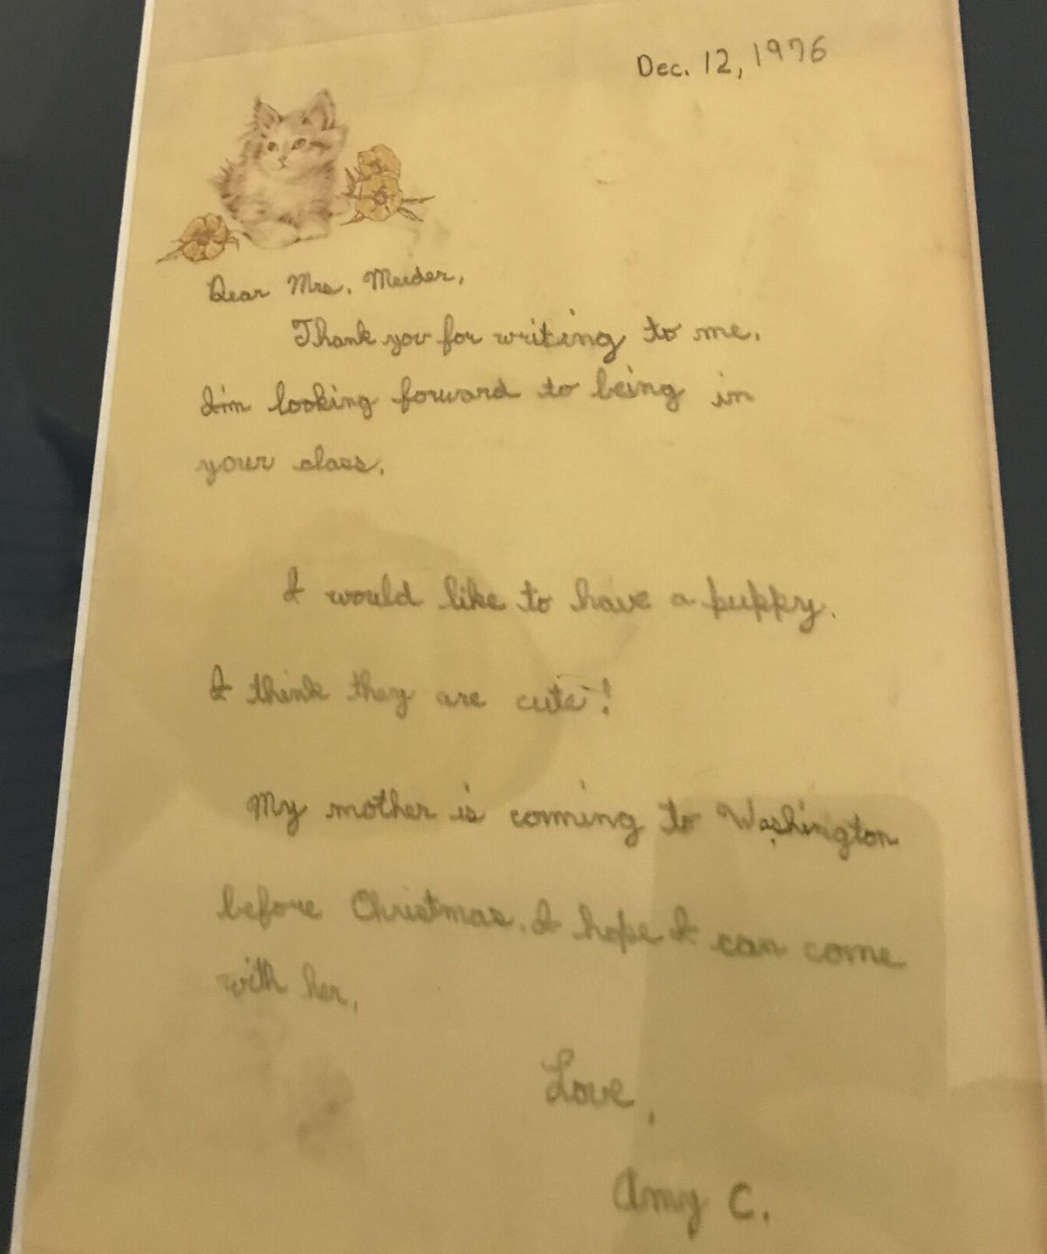 Dec. 12, 1976
Dear Mrs. Meeder,
Thank you for writing to me.
I'm looking forward to being in
your class.
I would like to have a puppy.
I think they are cute!
My mother is coming to Washington
before Christmas. I hope I can come
with her.
Love,
Amy C.